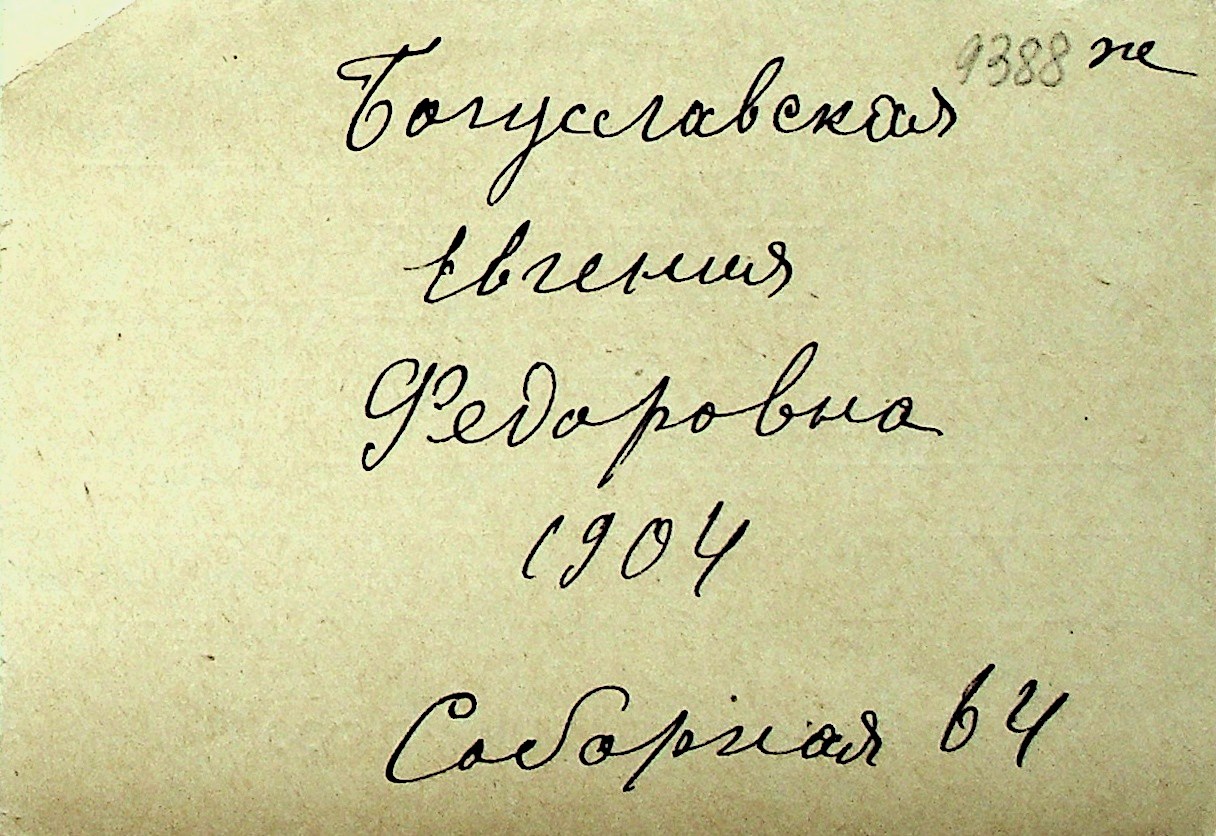 9388 ж
Богуславская
Евгения
Федоровна
1904
Соборная 64